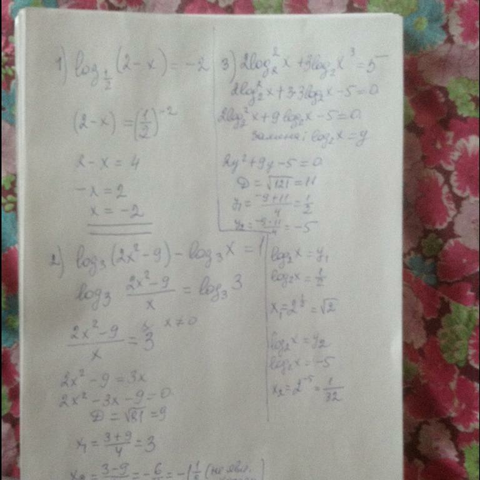 1) log_{1/2}(2-x) = -2
(2-x) = (1/2)^{-2}
2-x = 4
-x = 2
x = -2
2) log₃(2x²-9) - log₃x = 1
log₃ (2x²-9)/x = log₃3
(2x²-9)/x = 3 x≠0
2x²-9 = 3x
2x²-3x-9 = 0
D = √81 = 9
x₁ = (3+9)/4 = 3
x₂ = (3-9)/4 = -6/4 = -1
3) 2log₂²x + 3log₂x³ = 5
2log₂²x + 3·3log₂x - 5 = 0
2log₂²x + 9log₂x - 5 = 0
замена: log₂x = y
2y² + 9y - 5 = 0
D = √121 = 11
y₁ = (-9+11)/4 = 1/2
y₂ = (-9-11)/4 = -5
log₂x = y₁
log₂x = 1/2
x₁ = 2^{1/2} = √2
log₂x = y₂
log₂x = -5
x₂ = 2^{-5} = 1/32